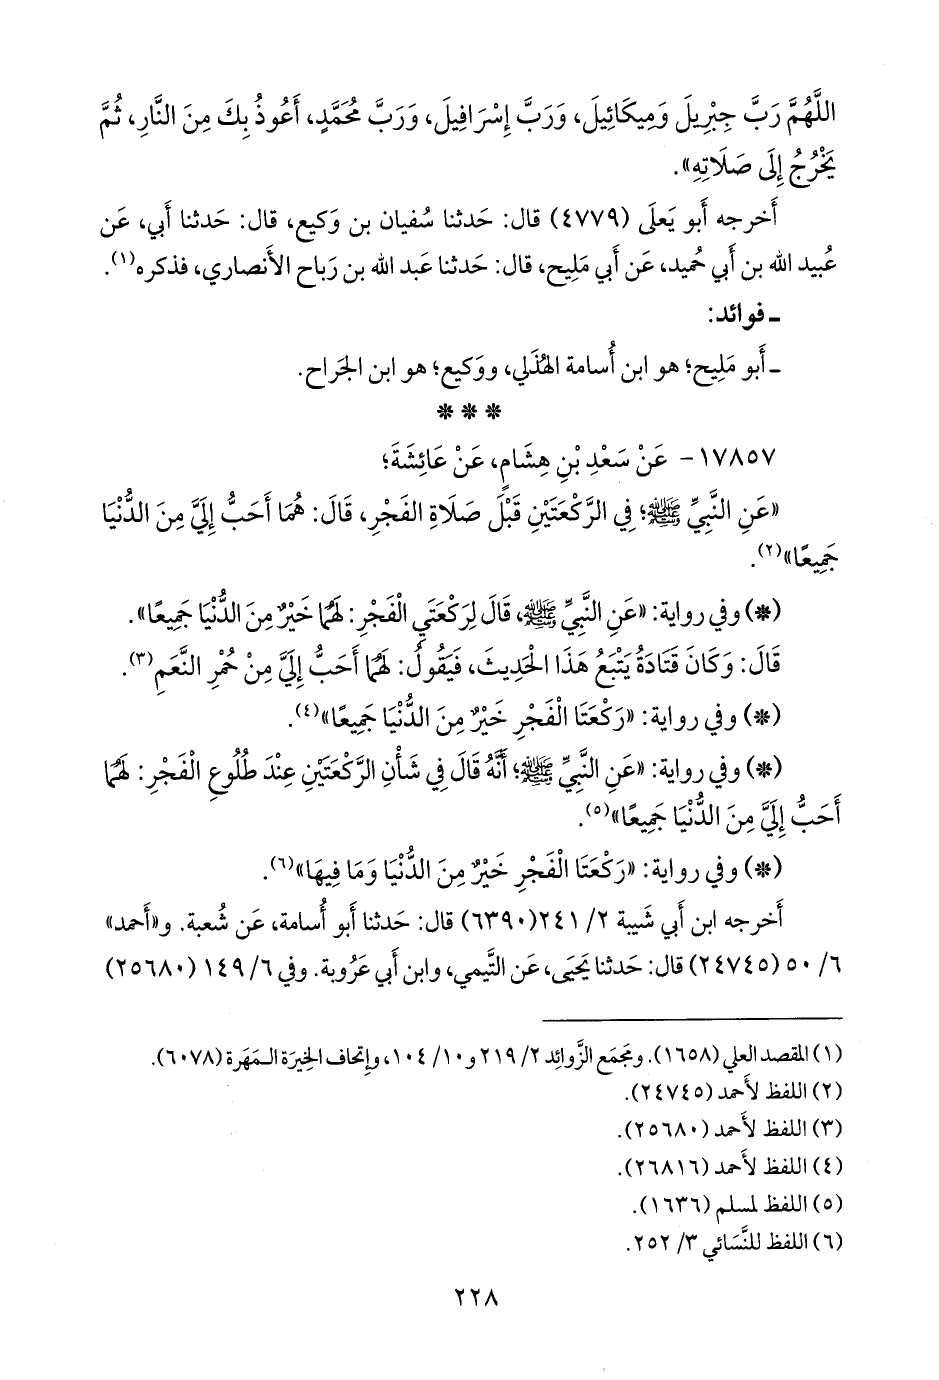 اللَّهُمَّ رَبَّ جِبْرِيلَ وَمِيكَائِيلَ، وَرَبَّ إِسْرَافِيلَ، وَرَبَّ مُحَمَّدٍ، أَعُوذُ بِكَ مِنَ النَّارِ، ثُمَّ
يَخْرُجُ إِلَى صَلَاتِهِ».
أَخرجه أَبو يَعلَى (٤٧٧٩) قال: حَدثنا سُفيان بن وَكيع، قال: حَدثنا أَبي، عَن
عُبيد الله بن أَبي حُميد، عَن أَبي مَليح، قال: حَدثنا عَبد الله بن رَباح الأَنصاري، فذكره(١).
ـ فوائد:
ـ أَبو مَليح؛ هو ابن أُسامة الهُذَلي، ووَكيع؛ هو ابن الجَراح.
* * *
١٧٨٥٧ - عَنْ سَعْدِ بْنِ هِشَامٍ، عَنْ عَائِشَةَ؛
«عَنِ النَّبِيِّ ﷺ؛ فِي الرَّكْعَتَيْنِ قَبْلَ صَلَاةِ الفَجْرِ، قَالَ: هُمَا أَحَبُّ إِلَيَّ مِنَ الدُّنْيَا
جَمِيعًا»(٢).
(*) وفي رواية: «عَنِ النَّبِيِّ ﷺ، قَالَ لِرَكْعَتَيِ الْفَجْرِ: لَهُمَا خَيْرٌ مِنَ الدُّنْيَا جَمِيعًا».
قَالَ: وَكَانَ قَتَادَةُ يَتْبَعُ هَذَا الْحَدِيثَ، فَيَقُولُ: لَهُمَا أَحَبُّ إِلَيَّ مِنْ حُمْرِ النَّعَمِ(٣).
(*) وفي رواية: «رَكْعَتَا الْفَجْرِ خَيْرٌ مِنَ الدُّنْيَا جَمِيعًا»(٤).
(*) وفي رواية: «عَنِ النَّبِيِّ ﷺ؛ أَنَّهُ قَالَ فِي شَأْنِ الرَّكْعَتَيْنِ عِنْدَ طُلُوعِ الْفَجْرِ: لَهُمَا
أَحَبُّ إِلَيَّ مِنَ الدُّنْيَا جَمِيعًا»(٥).
(*) وفي رواية: «رَكْعَتَا الْفَجْرِ خَيْرٌ مِنَ الدُّنْيَا وَمَا فِيهَا»(٦).
أَخرجه ابن أَبي شَيبة ٢/ ٢٤١(٦٣٩٠) قال: حَدثنا أَبو أُسامة، عَن شُعبة. و«أَحمد»
٦/ ٥٠ (٢٤٧٤٥) قال: حَدثنا يَحيَى، عَن التَّيمي، وابن أَبي عَرُوبة. وفي ٦/ ١٤٩ (٢٥٦٨٠)
(١) المقصد العلي (١٦٥٨). ومَجمَع الزَّوائد ٢/ ٢١٩ و١٠/ ١٠٤، وإتحاف الخِيرَة المَهَرة (٦٠٧٨).
(٢) اللفظ لأَحمد (٢٤٧٤٥).
(٣) اللفظ لأَحمد (٢٥٦٨٠).
(٤) اللفظ لأَحمد (٢٦٨١٦).
(٥) اللفظ لمسلم (١٦٣٦).
(٦) اللفظ للنَّسَائي ٣/ ٢٥٢.
٢٢٨